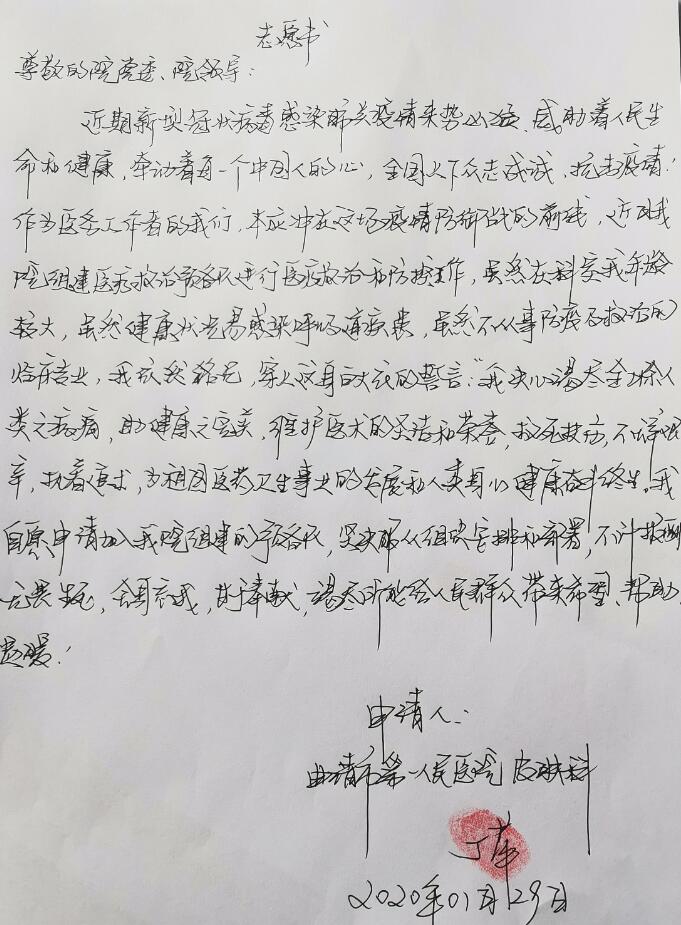 志愿书
尊敬的院党委、院领导：
近期新型冠状病毒感染肺炎疫情来势凶猛，威胁着人民生
命和健康，牵动着每一个中国人的心，全国上下众志成城，抗击疫情！
作为医务工作者的我们，本应冲在这场疫情防御战的前线，近日我
院组建医疗救治预备队进行医疗救治和防控工作，虽然在科室我年龄
较大，虽然健康状况易感染呼吸道疾患，虽然不从事防疫及救治的
临床专业，我依然铭记，穿上这身白大衣的誓言：“我决心竭尽全力除人
类之病痛，助健康之完美，维护医术的圣洁和荣誉，救死扶伤，不辞艰
辛，执着追求，为祖国医药卫生事业的发展和人类身心健康奋斗终生。我
自愿申请加入我院组建的预备队，坚决服从组织安排和部署，不计报酬
无畏生死，舍我，甘于奉献，竭尽所能给人民群众带来希望、帮助、
温暖！
申请人：
曲靖市第一人民医院 皮肤科
丁萍
2020年01月29日